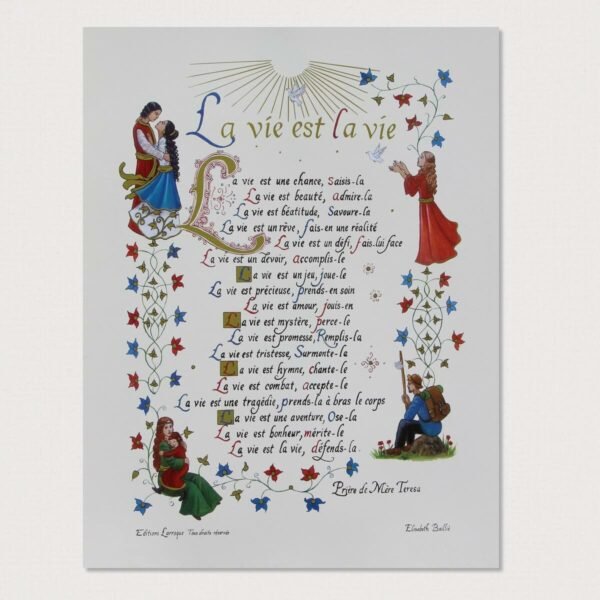 La vie est la vie
La vie est une chance, saisis-la
La vie est beauté, admire-la
La vie est béatitude, Savoure-la
La vie est un rêve, fais-en une réalité
La vie est un défi, fais-lui face
La vie est un devoir, accomplis-le
La vie est un jeu, joue-le
La vie est précieuse, prends-en soin
La vie est amour, jouis-en
La vie est mystère, perce-le
La vie est promesse, Remplis-la
La vie est tristesse, Surmonte-la
La vie est hymne, chante-le
La vie est combat, accepte-le
La vie est une tragédie, prends-la à bras le corps
La vie est une aventure, Ose-la
La vie est bonheur, mérite-le
La vie est la vie, défends-la
Prière de Mère Teresa
Editions Larroque Tous droits réservés
Elisabeth Baillé